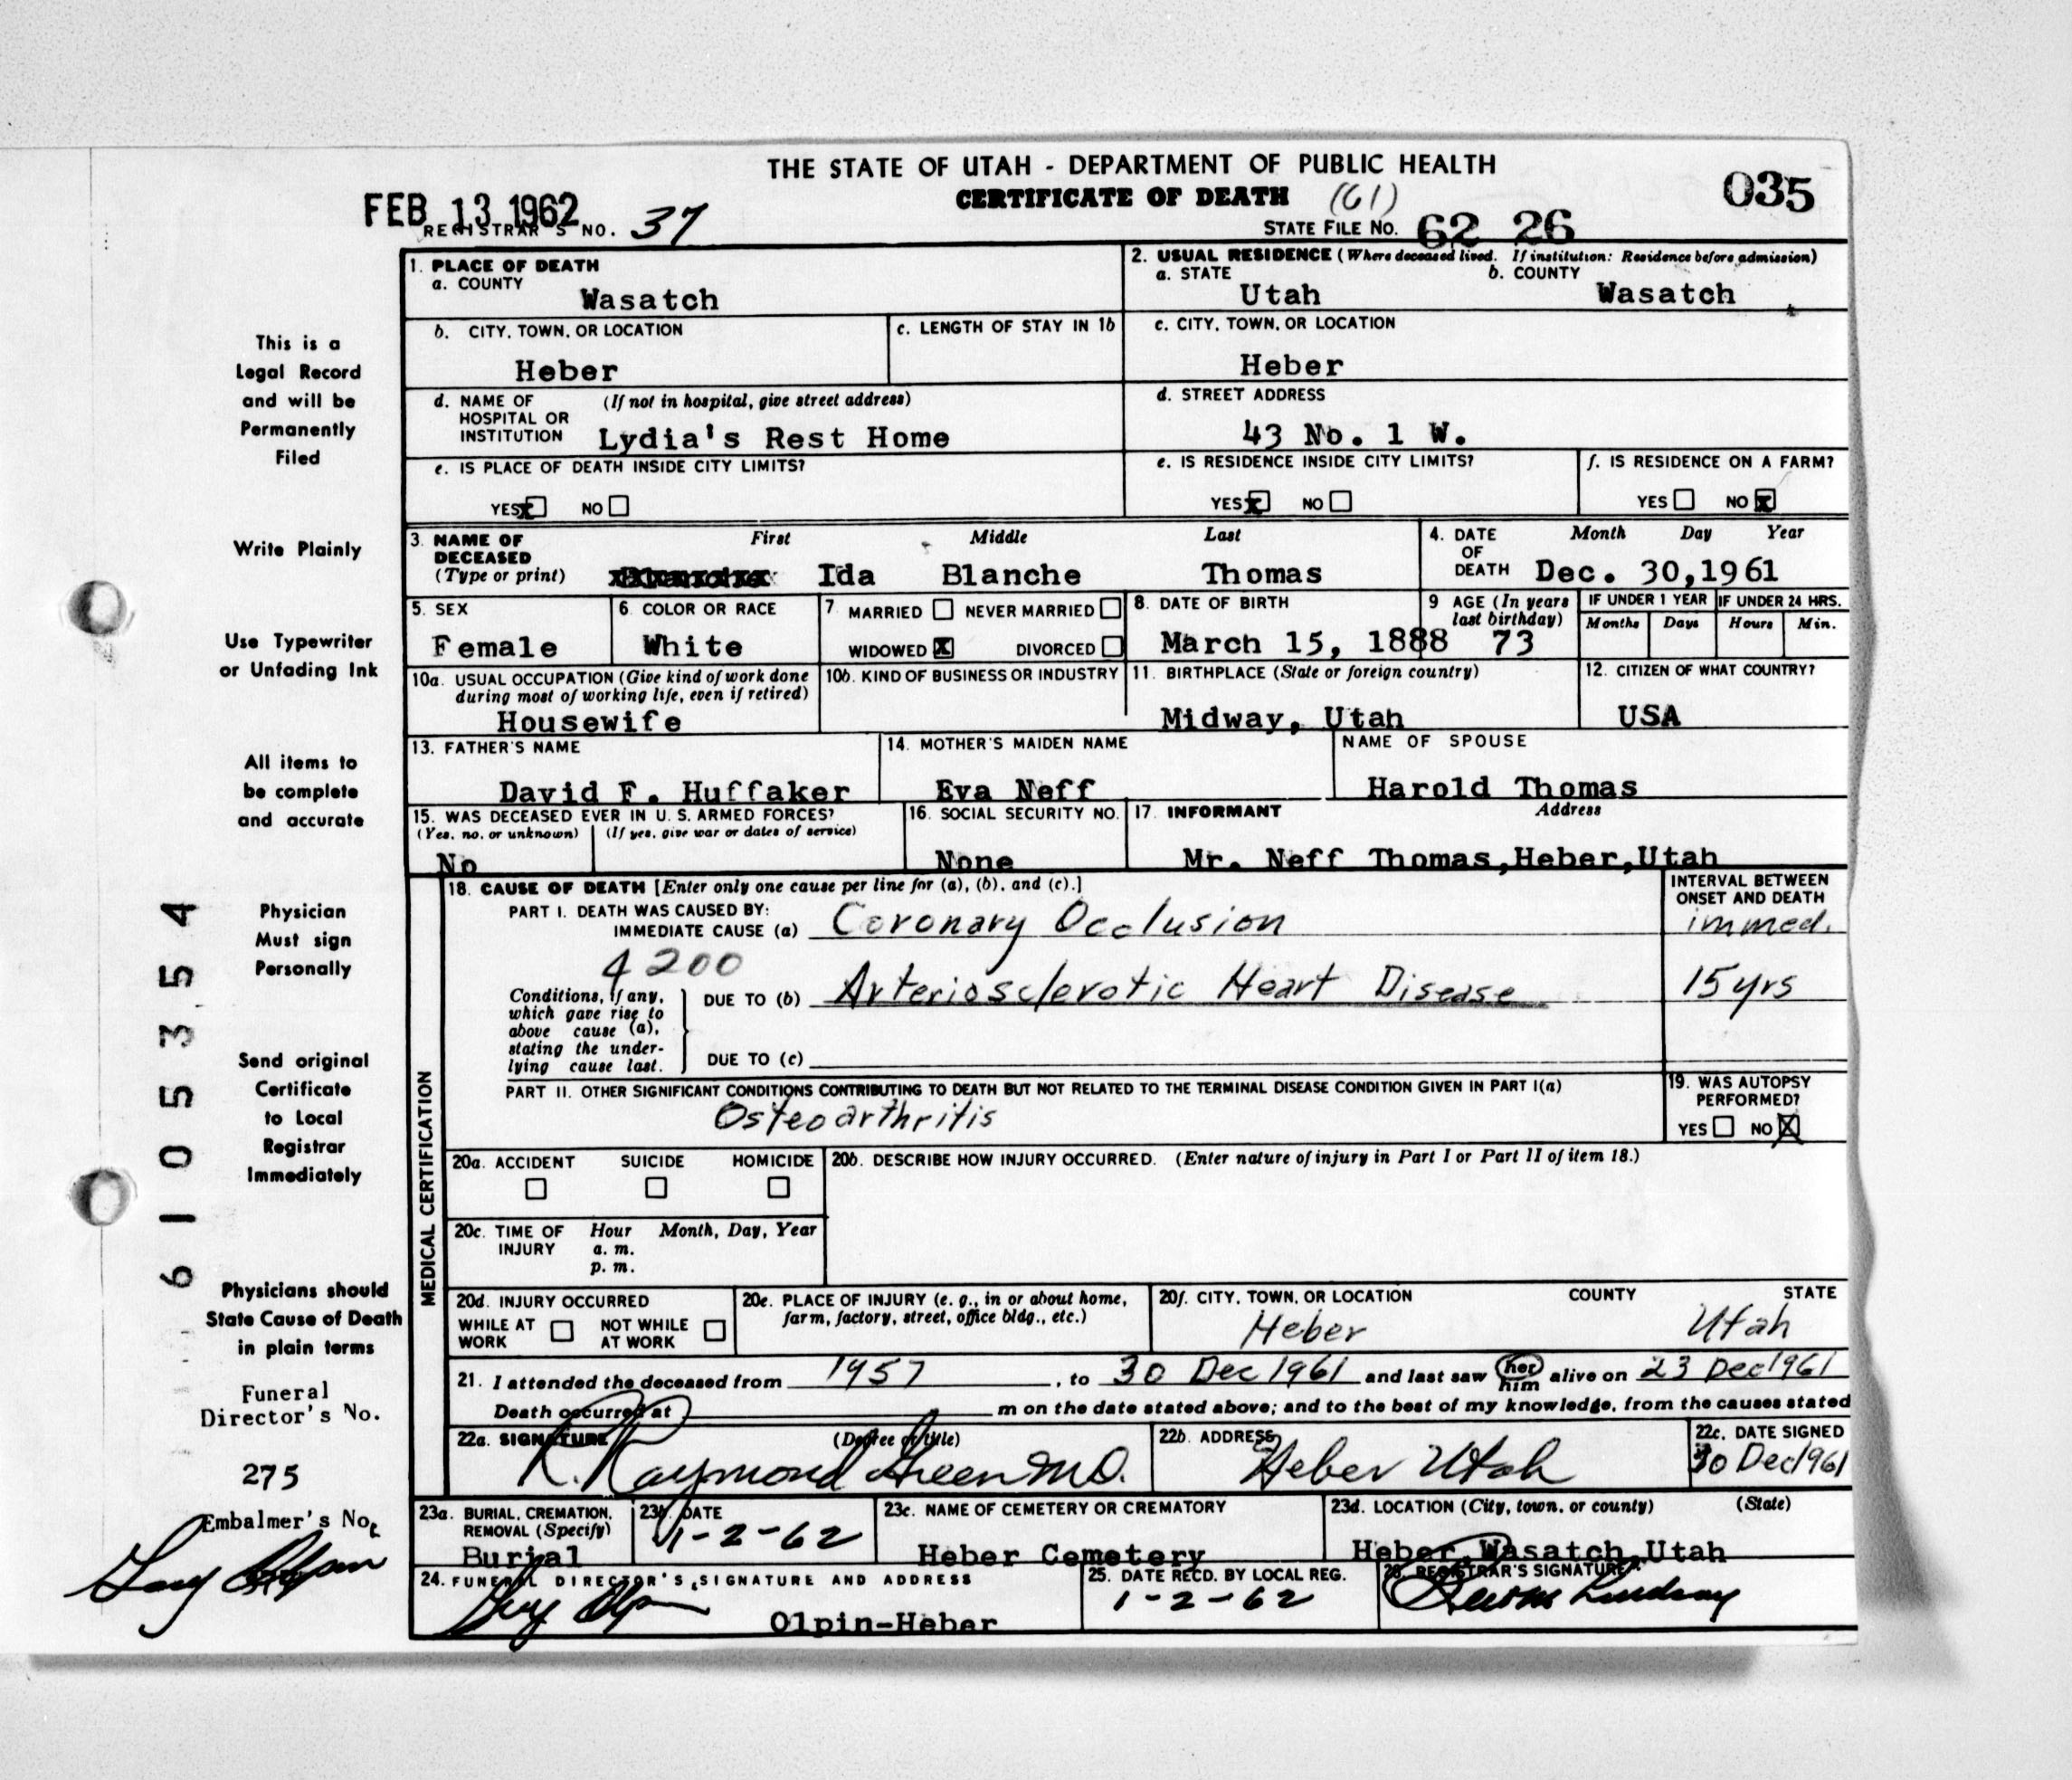 THE STATE OF UTAH - DEPARTMENT OF PUBLIC HEALTH
CERTIFICATE OF DEATH (61)
035
FEB 13 1962
REGISTRAR'S NO. 37
STATE FILE NO. 62 26
1. PLACE OF DEATH
a. COUNTY
Wasatch
2. USUAL RESIDENCE (Where deceased lived. If institution: Residence before admission)
a. STATE b. COUNTY
Utah Wasatch
b. CITY, TOWN, OR LOCATION
Heber
c. LENGTH OF STAY IN 1b
c. CITY, TOWN, OR LOCATION
Heber
d. NAME OF (If not in hospital, give street address)
HOSPITAL OR
INSTITUTION Lydia's Rest Home
d. STREET ADDRESS
43 No. 1 W.
e. IS PLACE OF DEATH INSIDE CITY LIMITS?
YES x NO
e. IS RESIDENCE INSIDE CITY LIMITS?
YES x NO
f. IS RESIDENCE ON A FARM?
YES NO x
3. NAME OF First Middle Last
DECEASED
(Type or print) Ida Blanche Thomas
4. DATE Month Day Year
OF
DEATH Dec. 30,1961
5. SEX
Female
6. COLOR OR RACE
White
7. MARRIED NEVER MARRIED
WIDOWED X DIVORCED
8. DATE OF BIRTH
March 15, 1888
9 AGE (In years
last birthday)
73
IF UNDER 1 YEAR IF UNDER 24 HRS.
Months Days Hours Min.
10a. USUAL OCCUPATION (Give kind of work done
during most of working life, even if retired)
Housewife
10b. KIND OF BUSINESS OR INDUSTRY
11. BIRTHPLACE (State or foreign country)
Midway, Utah
12. CITIZEN OF WHAT COUNTRY?
USA
13. FATHER'S NAME
David F. Huffaker
14. MOTHER'S MAIDEN NAME
Eva Neff
NAME OF SPOUSE
Harold Thomas
15. WAS DECEASED EVER IN U. S. ARMED FORCES?
(Yes, no, or unknown) (If yes, give war or dates of service)
No
16. SOCIAL SECURITY NO.
None
17. INFORMANT Address
Mr. Neff Thomas,Heber,Utah
MEDICAL CERTIFICATION
18. CAUSE OF DEATH [Enter only one cause per line for (a), (b), and (c).]
INTERVAL BETWEEN
ONSET AND DEATH
PART I. DEATH WAS CAUSED BY:
IMMEDIATE CAUSE (a) Coronary Occlusion immed.
4200
Conditions, if any,
which gave rise to
above cause (a),
stating the under-
lying cause last.
DUE TO (b) Arteriosclerotic Heart Disease 15 yrs
DUE TO (c)
PART II. OTHER SIGNIFICANT CONDITIONS CONTRIBUTING TO DEATH BUT NOT RELATED TO THE TERMINAL DISEASE CONDITION GIVEN IN PART I(a)
Osteoarthritis
19. WAS AUTOPSY
PERFORMED?
YES NO X
20a. ACCIDENT SUICIDE HOMICIDE
20b. DESCRIBE HOW INJURY OCCURRED. (Enter nature of injury in Part I or Part II of item 18.)
20c. TIME OF Hour Month, Day, Year
INJURY a. m.
p. m.
20d. INJURY OCCURRED
WHILE AT NOT WHILE
WORK AT WORK
20e. PLACE OF INJURY (e. g., in or about home,
farm, factory, street, office bldg., etc.)
20f. CITY, TOWN, OR LOCATION COUNTY STATE
Heber Utah
21. I attended the deceased from 1957, to 30 Dec 1961 and last saw her him alive on 23 Dec 1961
Death occurred at m on the date stated above; and to the best of my knowledge, from the causes stated
22a. SIGNATURE (Degree or title)
R. Raymond Green M.D.
22b. ADDRESS
Heber Utah
22c. DATE SIGNED
30 Dec 1961
23a. BURIAL, CREMATION,
REMOVAL (Specify)
Burial
23b. DATE
1-2-62
23c. NAME OF CEMETERY OR CREMATORY
Heber Cemetery
23d. LOCATION (City, town, or county) (State)
Heber, Wasatch Utah
24. FUNERAL DIRECTOR'S SIGNATURE AND ADDRESS
Olpin-Heber
25. DATE RECD. BY LOCAL REG.
1-2-62
26. REGISTRAR'S SIGNATURE
Lindsay
This is a
Legal Record
and will be
Permanently
Filed
Write Plainly
Use Typewriter
or Unfading Ink
All items to
be complete
and accurate
Physician
Must sign
Personally
Send original
Certificate
to Local
Registrar
Immediately
Physicians should
State Cause of Death
in plain terms
Funeral
Director's No.
275
Embalmer's No.
6105354